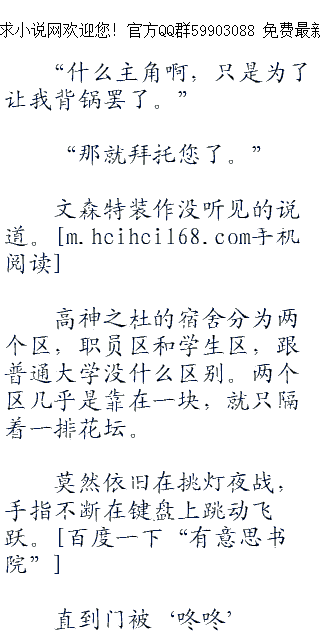 求小说网欢迎您! 官方QQ群59903088 免费最新
“什么主角啊，只是为了
让我背锅罢了。”
“那就拜托您了。”
文森特装作没听见的说
道。[m.hcihcil68.com手机
阅读]
高神之杜的宿舍分为两
个区，职员区和学生区，跟
普通大学没什么区别。两个
区几乎是靠在一块，就只隔
着一排花坛。
莫然依旧在挑灯夜战，
手指不断在键盘上跳动飞
跃。[百度一下“有意思书
院”]
直到门被‘咚咚’